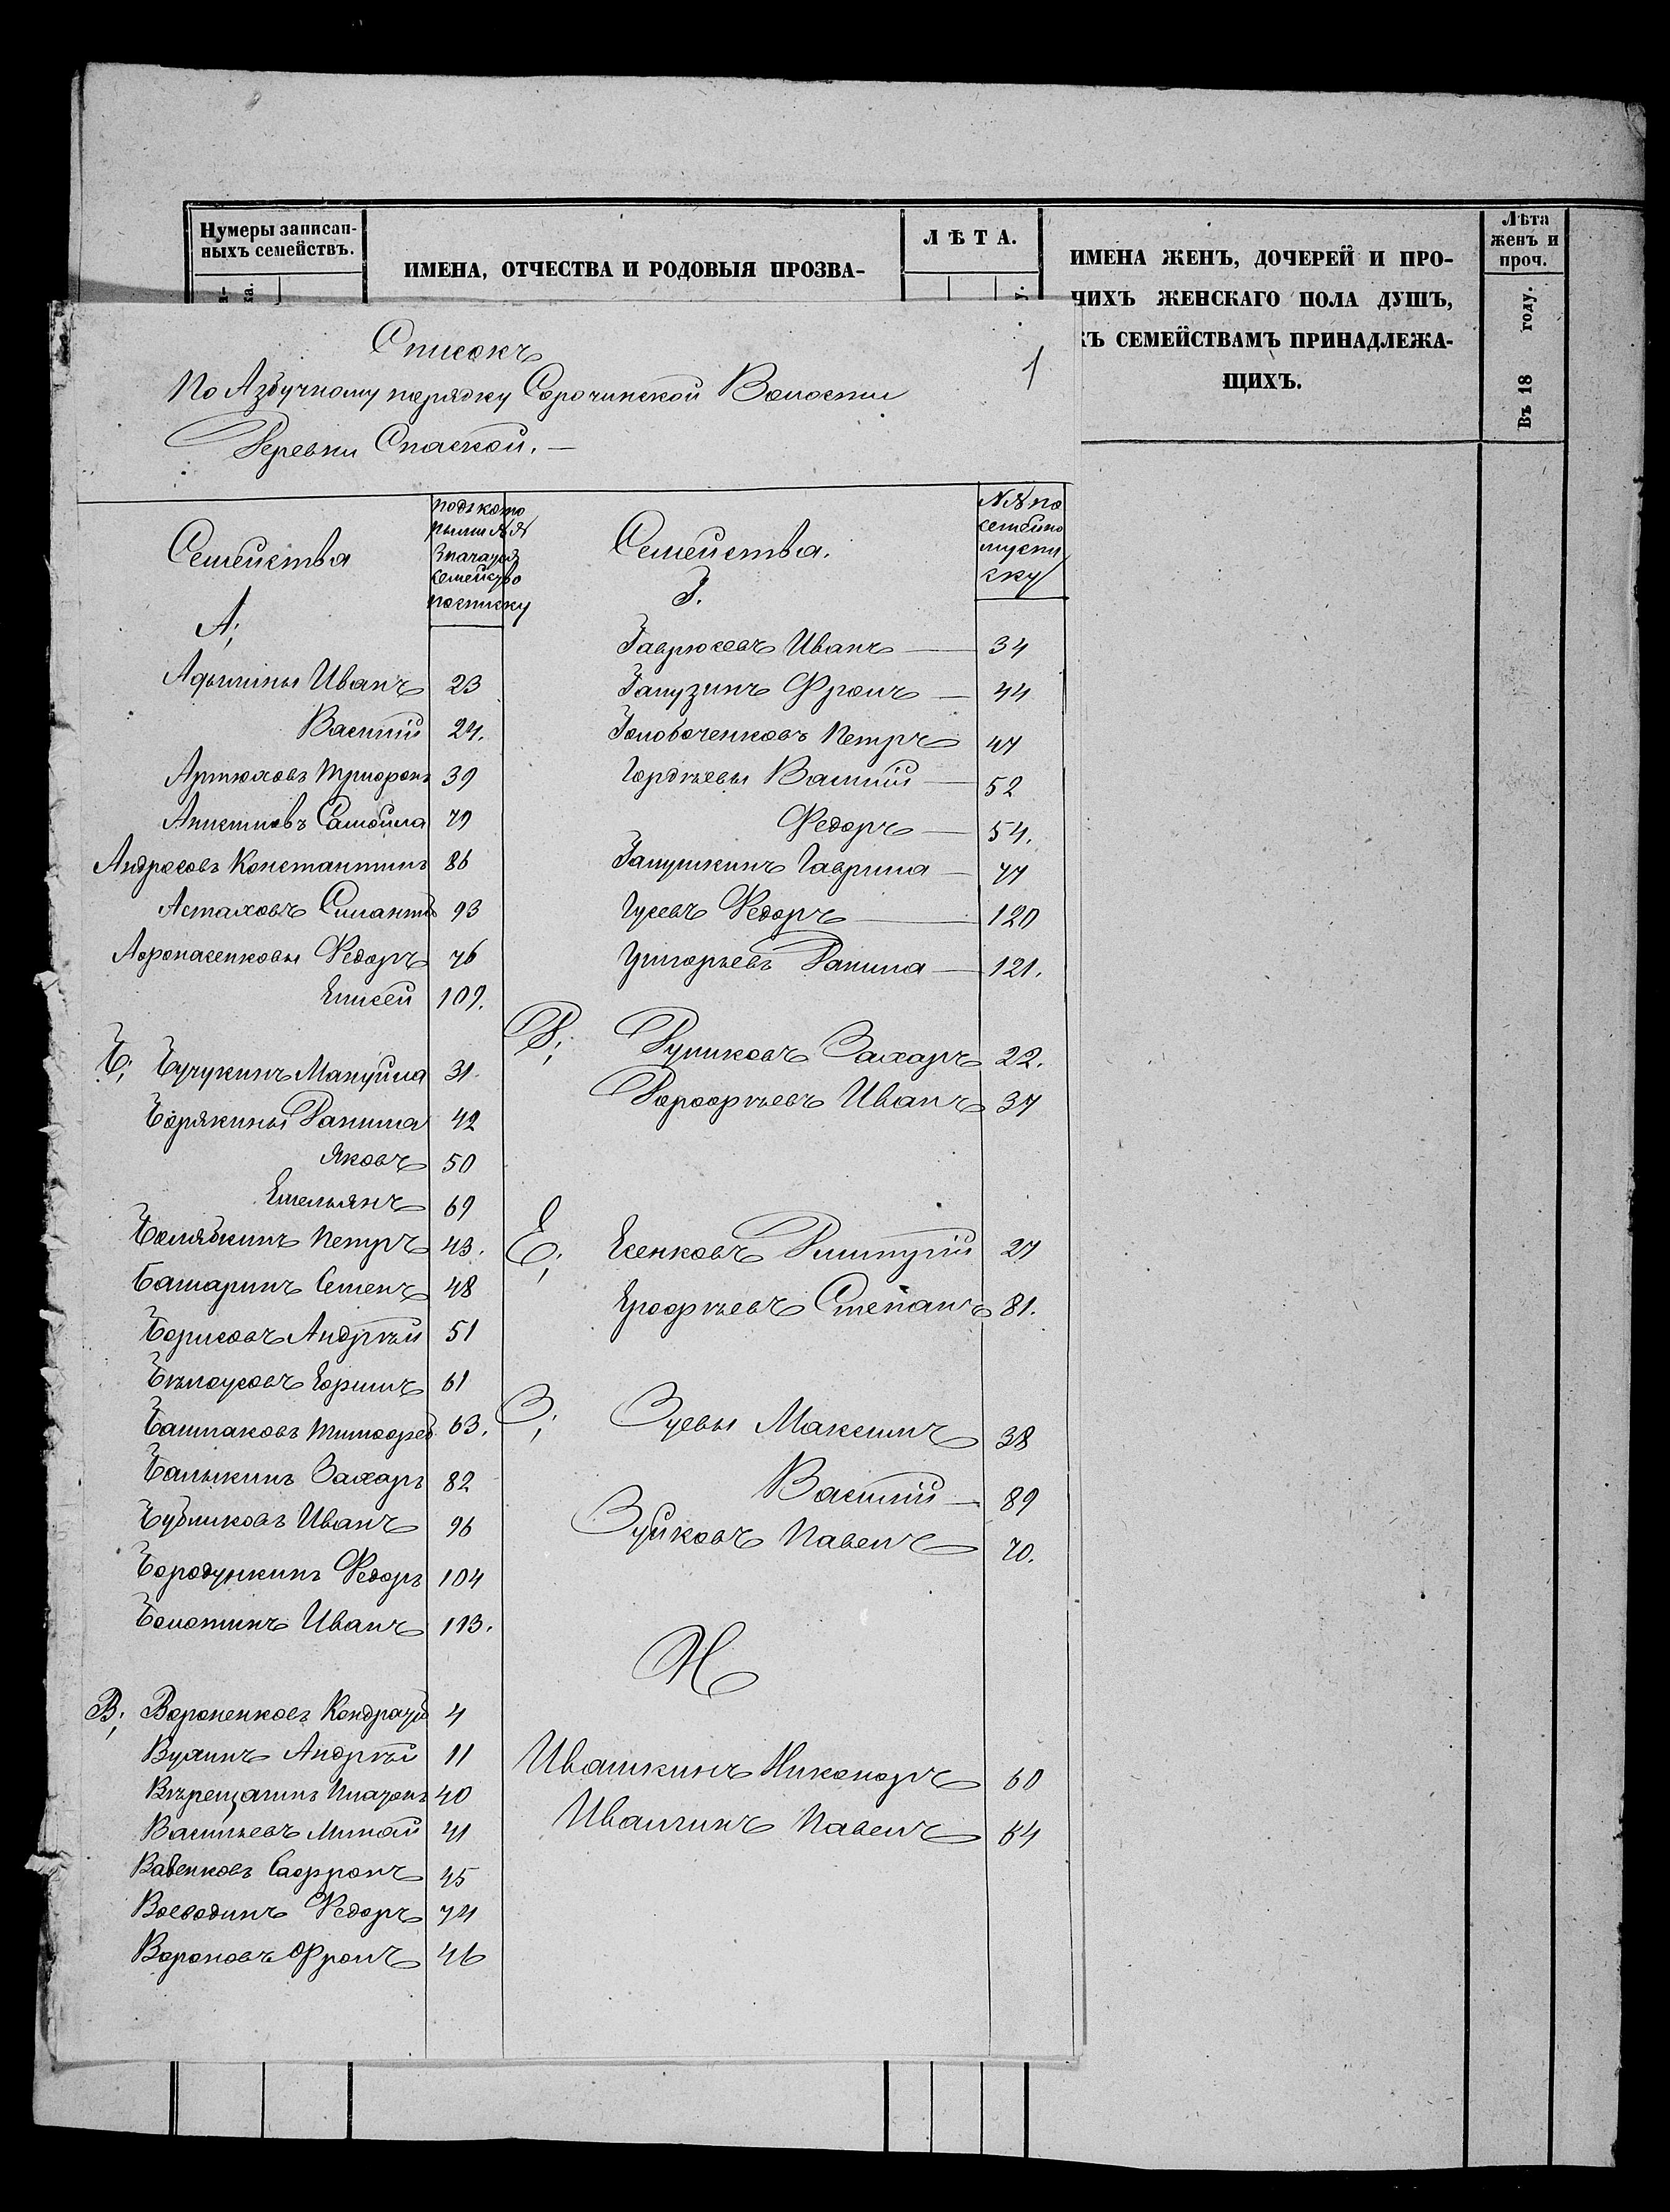 Нумеры записан-
ныхъ семействъ.
ИМЕНА, ОТЧЕСТВА И РОДОВЫЯ ПРОЗВА-
ЛѢТА.
ИМЕНА ЖЕНЪ, ДОЧЕРЕЙ И ПРО-
ЧИХЪ ЖЕНСКАГО ПОЛА ДУШЪ,
КЪ СЕМЕЙСТВАМЪ ПРИНАДЛЕЖА-
ЩИХЪ.
Лѣта
женъ и
проч.
Въ 18 году.
Списокъ
1
По Азбучному порядку Сорочинской Волости
Деревни Спаской.—
Семейства
подъ кото
рыми №№
значатся
семейство
посписку
А;
23
Василій 24.
Артюховъ Трифонъ 39
Самойла 79
Андросовъ Константинъ 86
Астаховъ Силантій 93
Афонасенковы Федоръ 76
Елисей 109.
Б; Бучукинъ Мануйла 31.
Борякины Данила 42
Яковъ 50
Емельянъ 69
Болябкинъ Петръ 43.
Батаринъ Семенъ 48
Борисовъ Андрѣй 51
Бѣлоусовъ Ефимъ 61
Башмаковъ Тимофей 63.
Балыкинъ Захаръ 82
Бубликовъ Иванъ 96
Бородункинъ Федоръ 104
Болотинъ Иванъ 113.
В; Вороненковъ Кондратій 4
Вухинъ Андрѣй 11
Вѣрещагинъ Платонъ 40
Васильевъ Минай 41
Вавенковъ Сафронъ 45
Воеводинъ Федоръ 74
Вороновъ Фролъ 46
Семейства.
№№ по
семейно
му спи
ску
Г.
Гаврюсевъ Иванъ — 34
Галузинъ Фролъ — 44
Головоченковъ Петръ 47
Гордѣевы Василій — 52
Федоръ — 54.
Галушкинъ Гаврила — 77
Гусевъ Федоръ — 120
Григорьевъ Данила — 121.
Д; Дуликовъ Захаръ 22.
Дорофѣевъ Иванъ 37
Е; Есенковъ Дмитрій 27
Ерофѣевъ Степанъ 81.
З; Зуевы Максимъ 38
Василій — 89
Зуйковъ Павелъ 70.
И
Ивашкинъ Никоноръ 60
Иванчинъ Павелъ 64